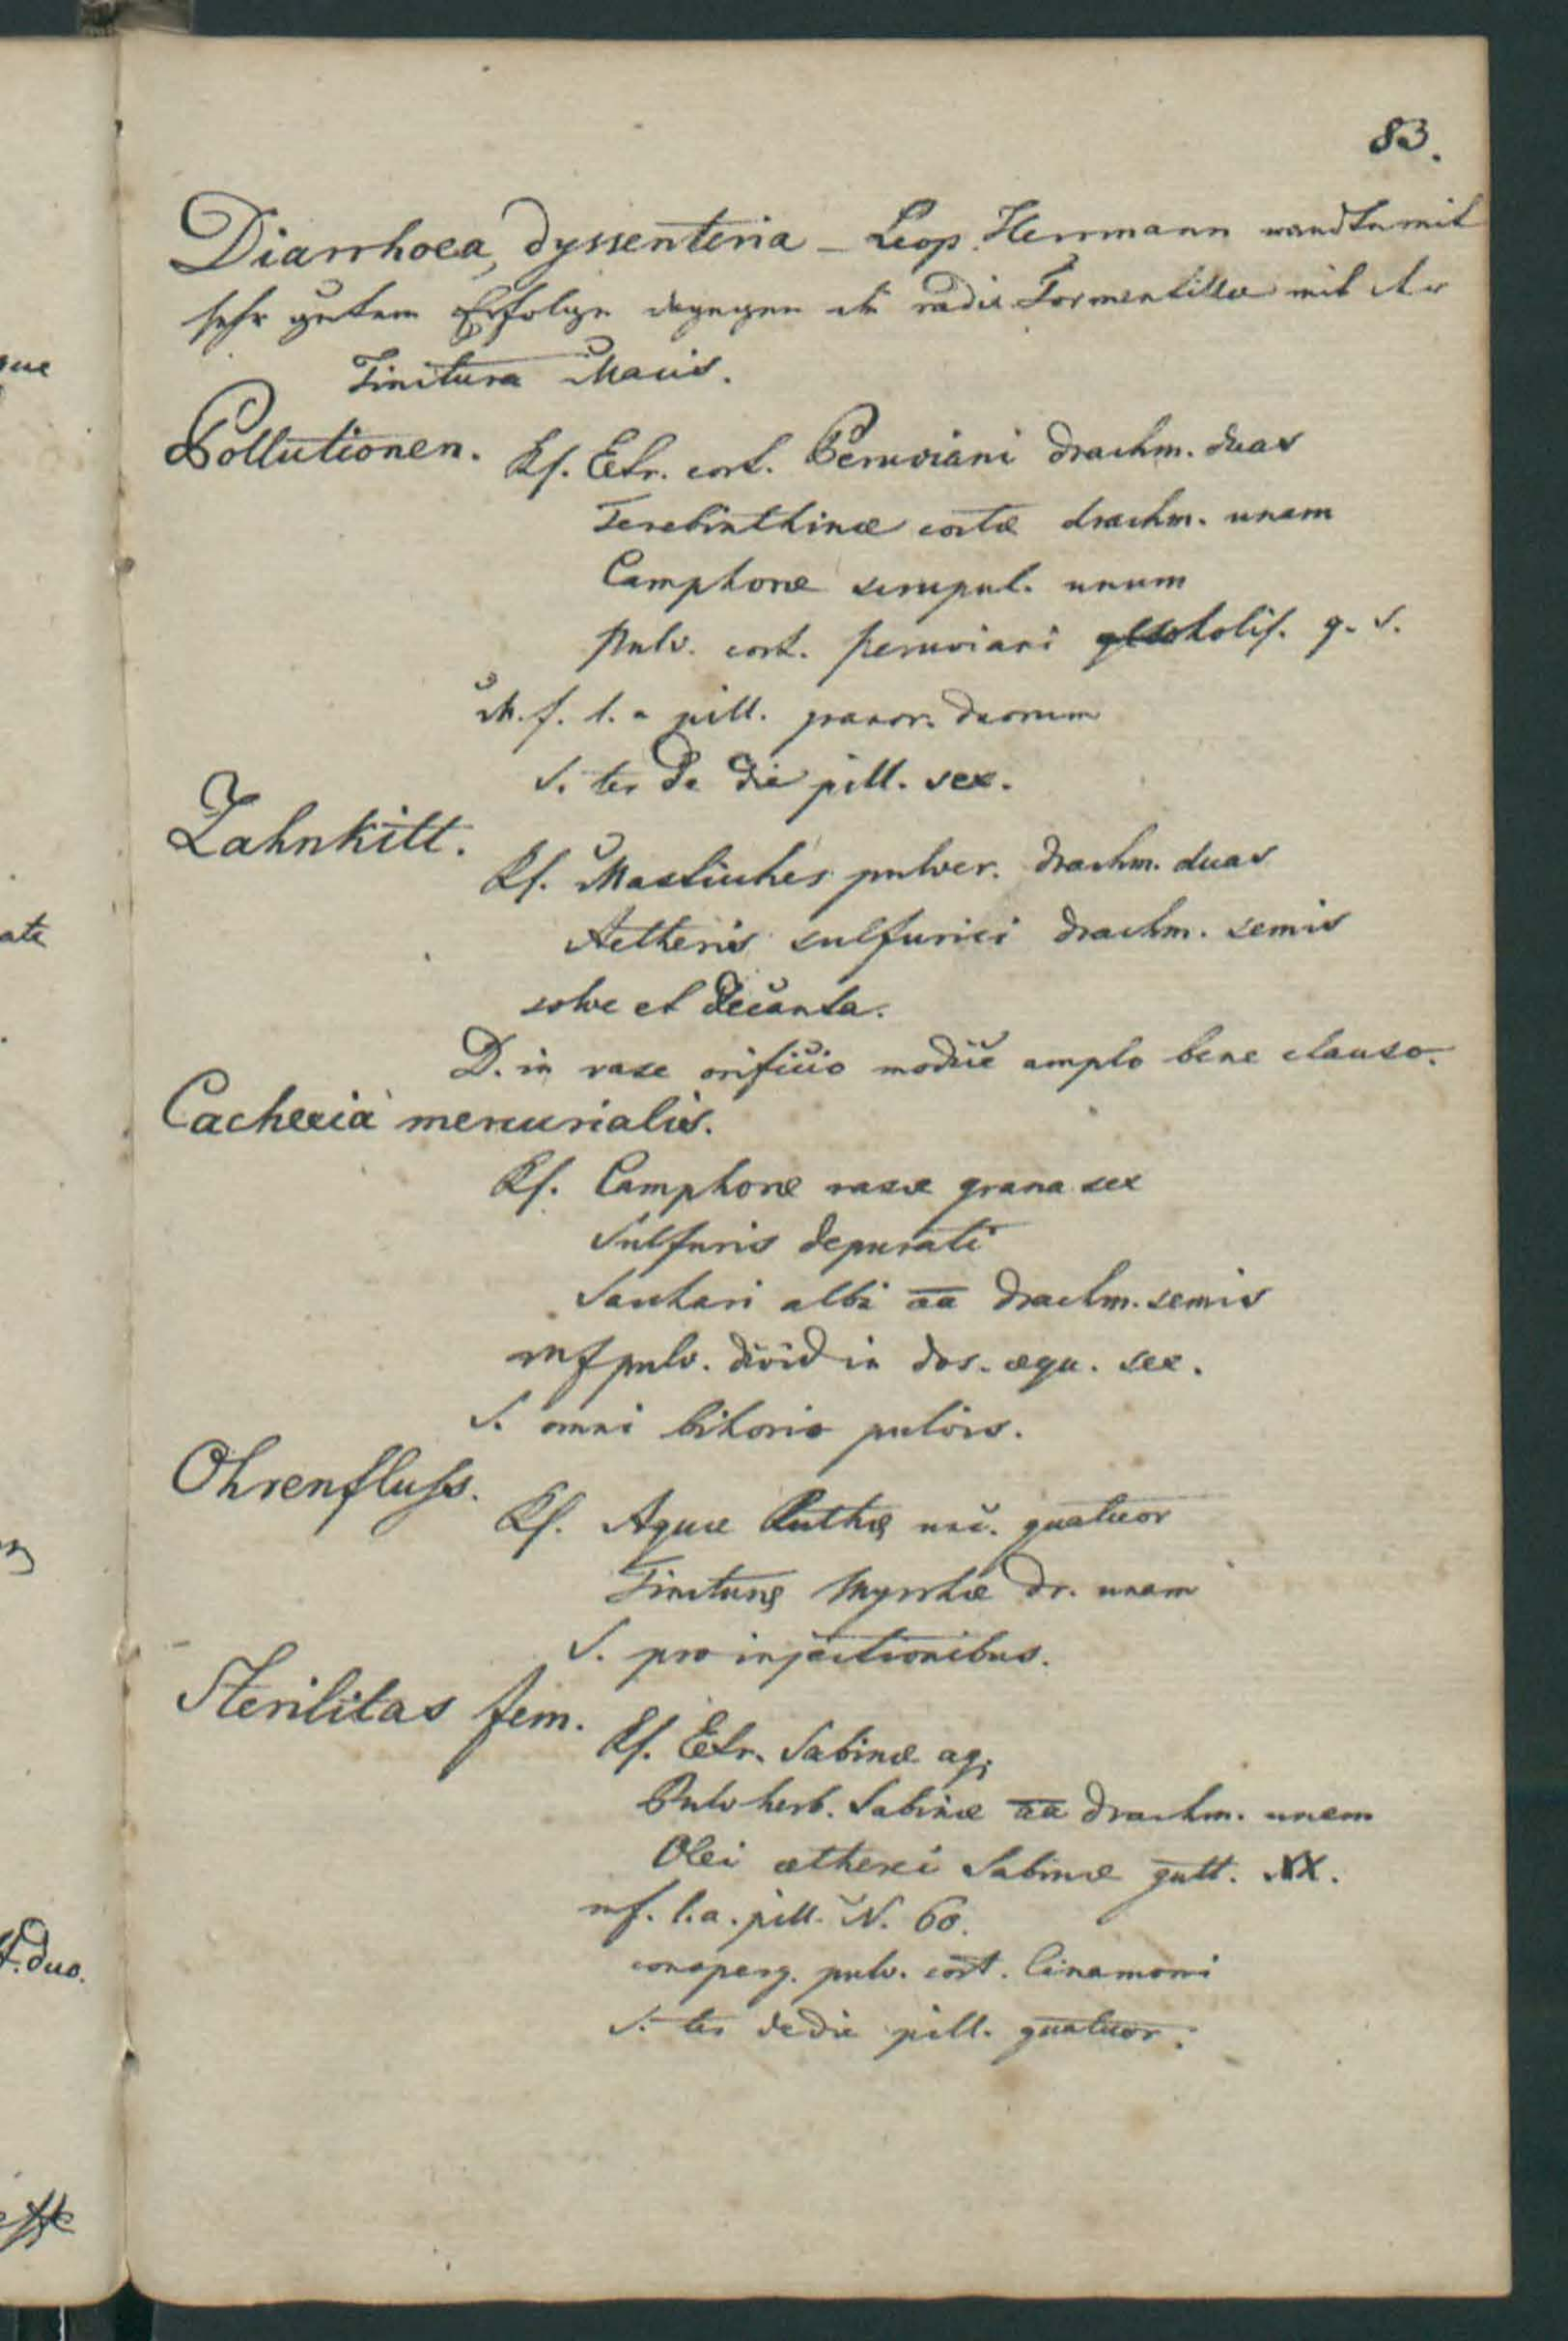 83.
Diarrhoea, dyssenteria – Leop. Herrmann wandte mit
sehr gutem Erfolge dagegen die radix Tormentillae mit der
Tinctura Macis.
Pollutionen. Rf. Extr. cort. Peruviani drachm. duas
Terebinthinæ coctæ drachm. unam
Camphoræ scrupul. unum
Pulv. cort. peruviani q. s.
M. f. l. a pill. granor. duorum
S. ter de die pill. sex.
Zahnkitt.
Rf. Mastiches pulver. drachm. duas
Aetheris sulfurici drachm. semis
solve et decanta.
D. in vase orificio modice amplo bene clauso.
Cachexia mercurialis.
Rf. Camphoræ rasæ grana sex
Sulfuris depurati
Sacchari albi aa drachm. semis
mf pulv. divid in dos. æqu. sex.
S. omni bihorio pulvis.
Ohrenfluss.
Rf. Aquæ Ruthæ unc. quatuor
Tincturæ Myrrhæ dr. unam
S. pro injectionibus.
Sterilitas fem.
Rf. Extr. Sabinæ aq.
Pulv herb. Sabinæ aa drachm. unam
Olei ætherei Sabinæ gutt. XX.
mf. l. a. pill. N. 60.
consperg. pulv. cort. Cinamomi
S. ter de die pill. quatuor.
ate
t. duo.